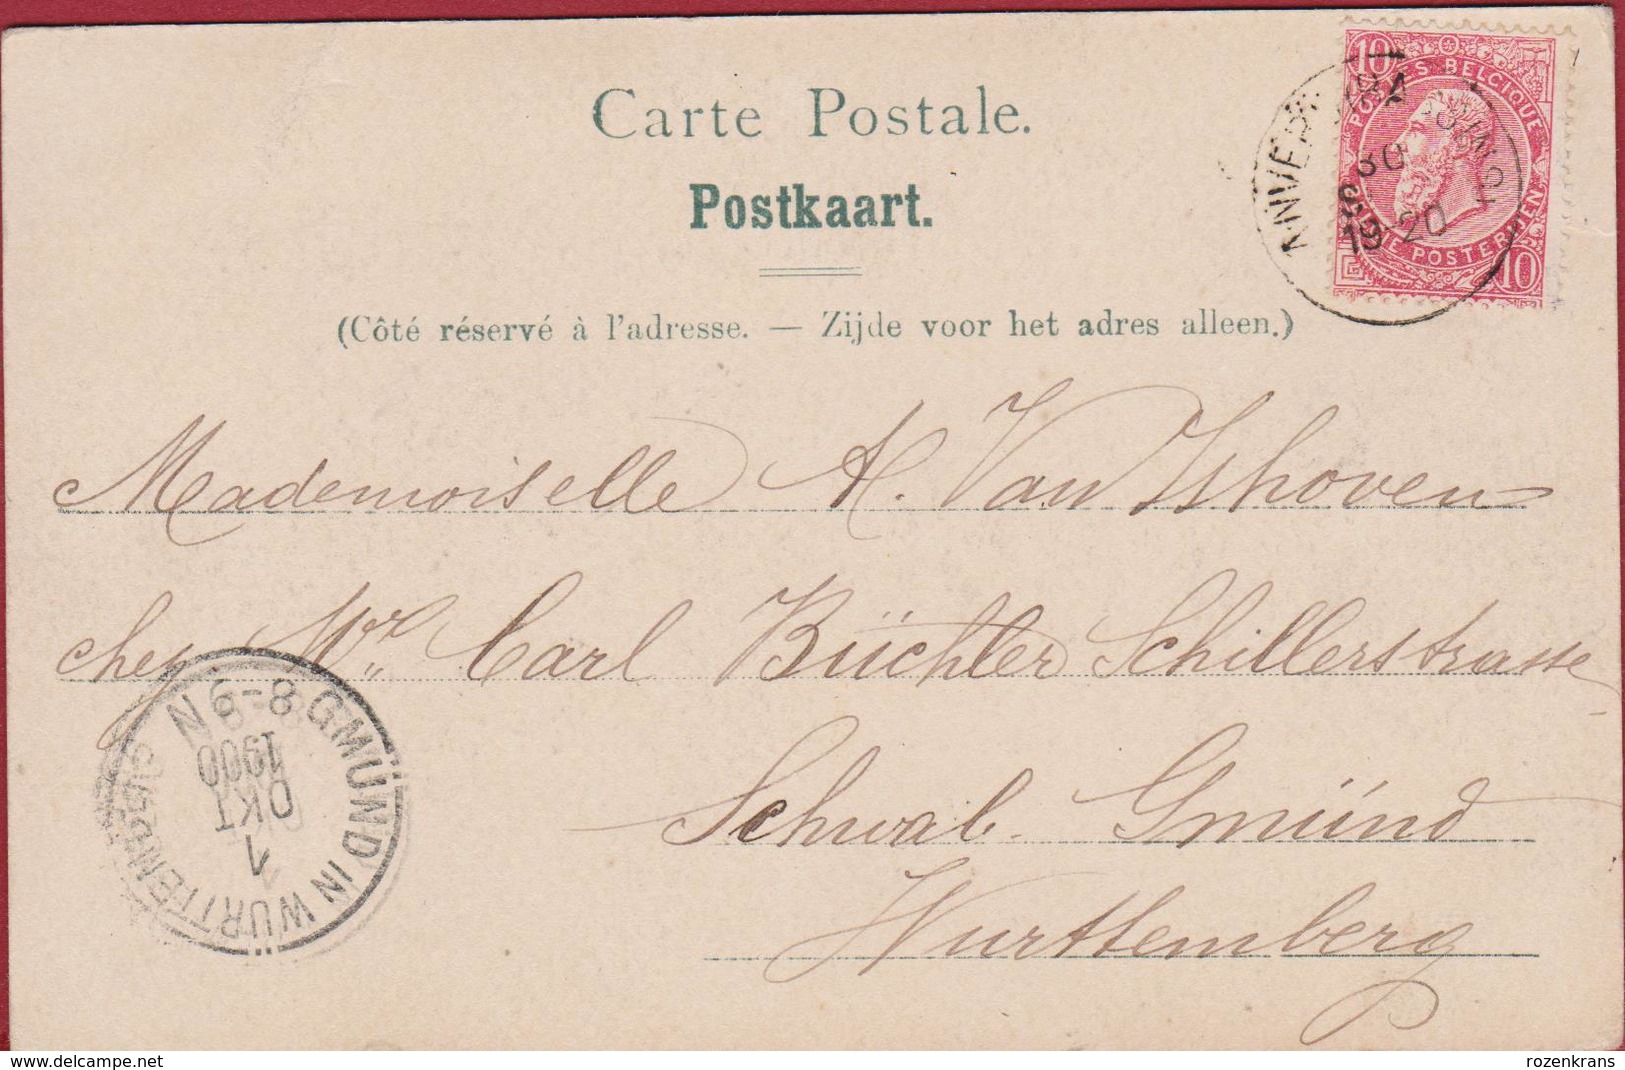 Carte Postale.
Postkaart.
(Côté réservé à l'adresse. — Zijde voor het adres alleen.)
10 POSTES BELGIQUE 10
BELGIE POSTERIJEN
10
ANVERS
30
19-20
Mademoiselle A. Van Ishoven
chez Mr. Carl Büchler Schillerstrasse
Schwäb. Gmünd
Wurttemberg
GMÜND IN WÜRTTEMBERG
1
OKT
1900
N 6-8
delcampe.net
rozenkrans